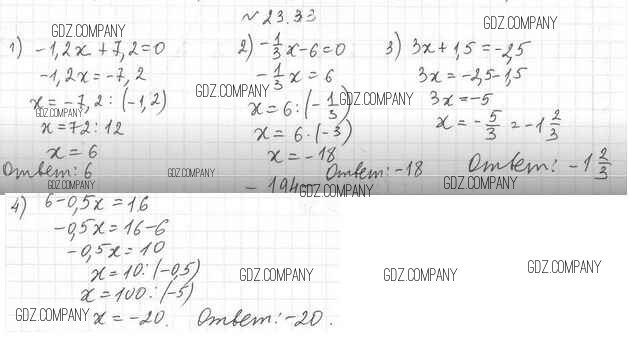 № 23.33
1) -1,2x + 7,2 = 0
-1,2x = -7,2
x = -7,2 : (-1,2)
x = 72 : 12
x = 6
Ответ: 6
2) -1/3x - 6 = 0
-1/3x = 6
x = 6 : (-1/3)
x = 6 · (-3)
x = -18
Ответ: -18
3) 3x + 1,5 = -2,5
3x = -2,5 - 1,5
3x = -5
x = -5/3 = -1 2/3
Ответ: -1 2/3
- 194
4) 6 - 0,5x = 16
-0,5x = 16 - 6
-0,5x = 10
x = 10 : (-0,5)
x = 100 : (-5)
x = -20. Ответ: -20.
GDZ.COMPANY
GDZ.COMPANY
GDZ.COMPANY
GDZ.COMPANY
GDZ.COMPANY
GDZ.COMPANY
GDZ.COMPANY
GDZ.COMPANY
GDZ.COMPANY
GDZ.COMPANY
GDZ.COMPANY
GDZ.COMPANY
GDZ.COMPANY